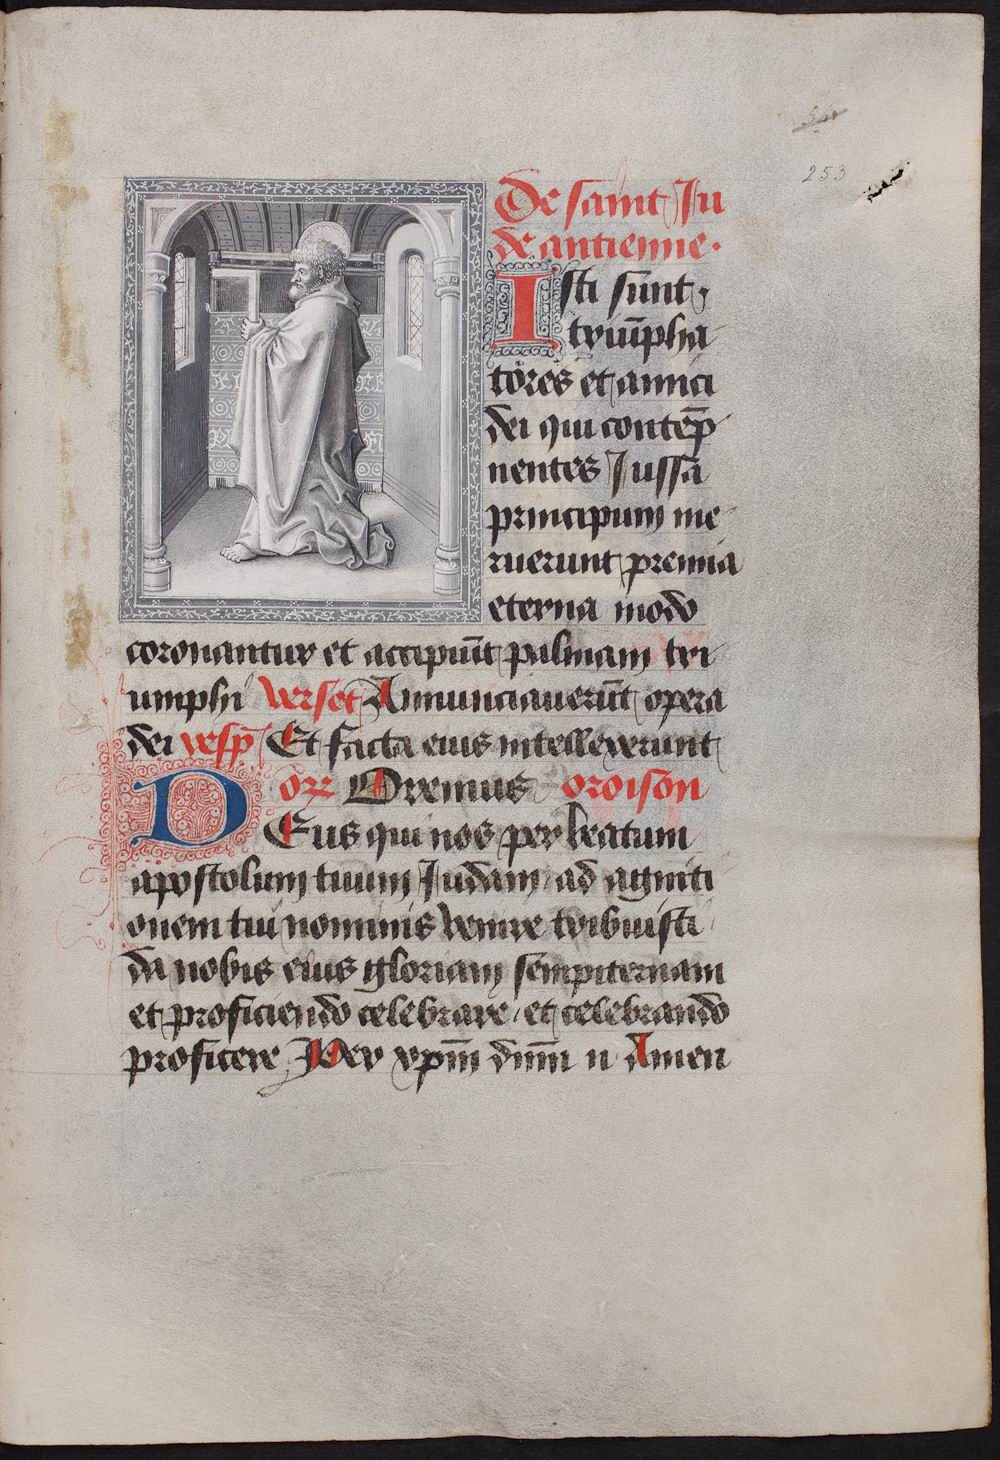 253
De saint Ju
de antienne.
Isti sunt
triūpha
tores et amici
dei qui contēp
nentes Jussa
principum me
ruerunt premia
eterna modo
coronantur et accipiūt palmam tri
umphi verset Annunciauerūt opera
dei resp̄ Et facta eius intellexerunt
Oremus oroison
DEus qui nos per beatum
apostolum tuum Judam ad agniti
onem tui nominis venire tribuisti
da nobis eius gloriam sempiternam
et proficiendo celebrare et celebrando
proficere Per xp̄m dn̄m n Amen